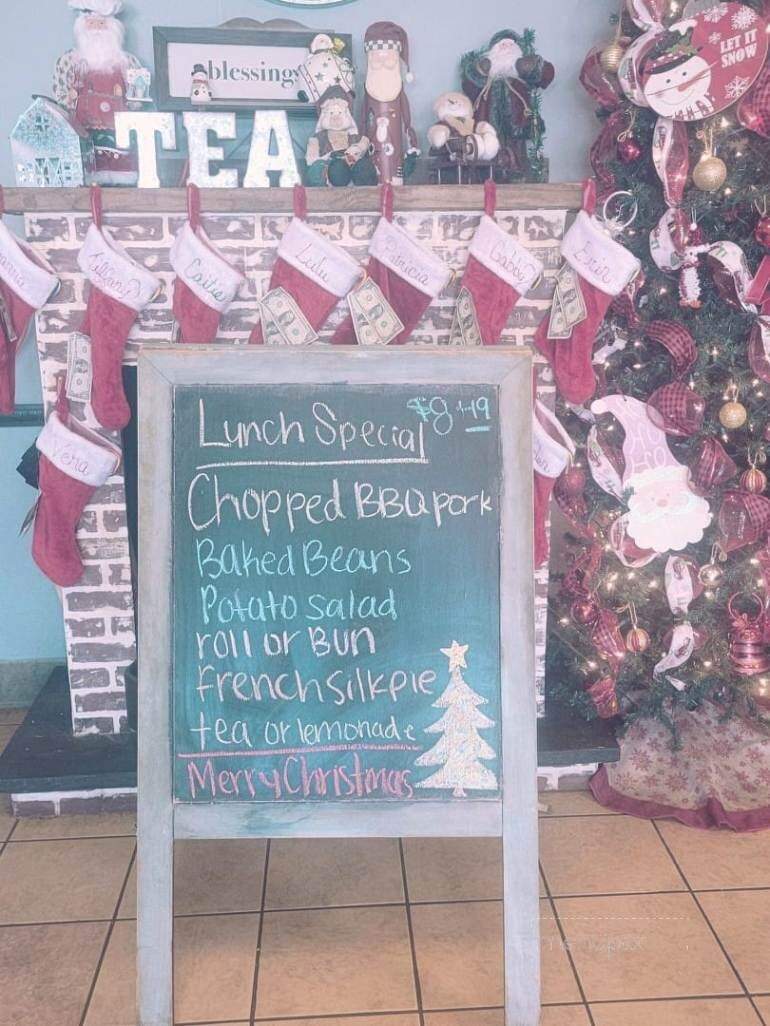 blessings
LET IT
SNOW
TEA
Caitie
Lulu
Patricia
Gabby
Erin
Vera
HO
HO
Lunch Special $8.49
Chopped BBQ pork
Baked Beans
Potato salad
roll or Bun
french silk pie
tea or lemonade
Merry Christmas